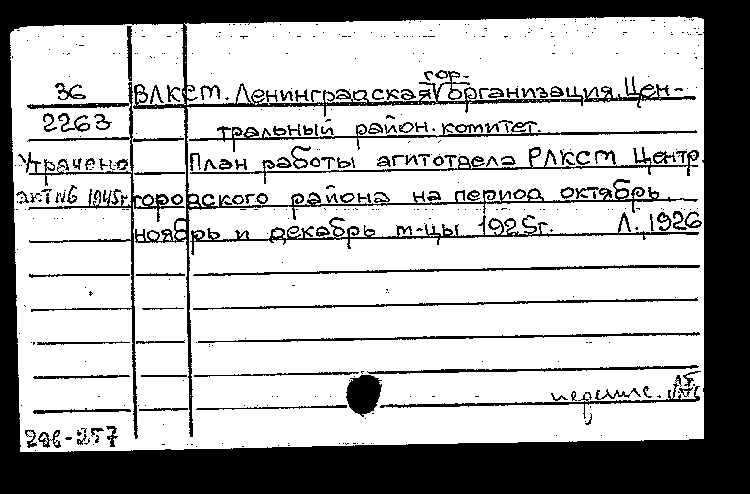 гор.
36 ВЛКСМ. Ленинградская V организация. Цен-
2263 тральный район. комитет.
Утрачено План работы агитотдела РЛКСМ Центр.
акт №6 1945г. городского района на период октябрь
ноябрь и декабрь м-цы 1925г. Л. 1926
286-257